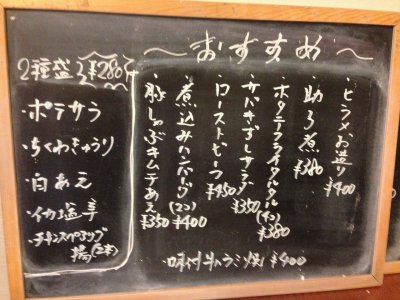 〜おすすめ〜
・ヒラメお造り ¥400
・助子煮 ¥380
・ホタテフライタルタル(4コ) ¥380
・サバきずしサラダ ¥350
・ローストビーフ ¥450
・煮込みハンバーグ(2コ) ¥400
・豚しゃぶキムチあえ ¥350
2種盛り ¥280
・ポテサラ
・ちくわきゅうり
・白あえ
・イカ塩辛
・チキンスペアリブ
揚(2本)
¥400